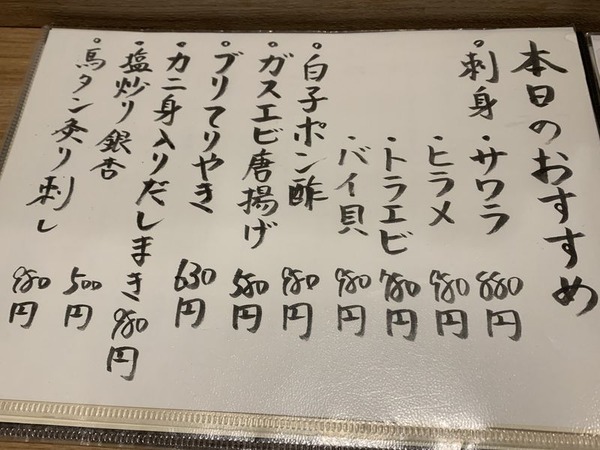 本日のおすすめ
。刺身・サワラ 880円
・ヒラメ 980円
・トラエビ 780円
・バイ貝 980円
。白子ポン酢 980円
。ガスエビ唐揚げ 580円
。ブリてりやき 630円
。カニ身入りだしまき 980円
・塩炒り銀杏 500円
・馬タン炙り刺し 980円